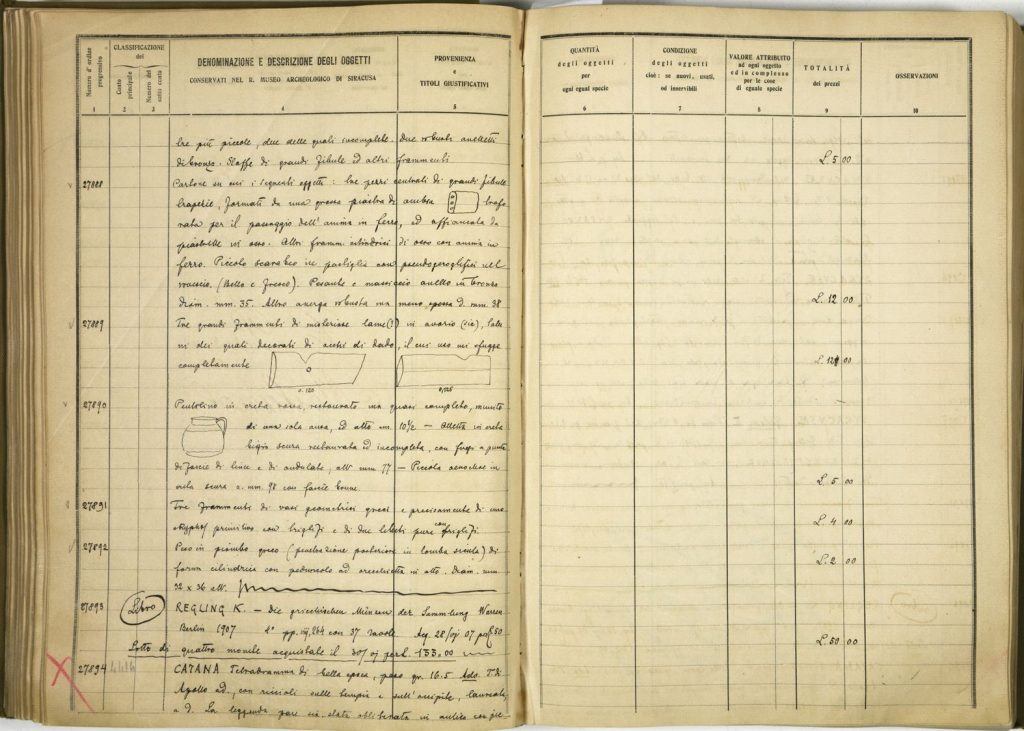 Numero d'ordine progressivo
CLASSIFICAZIONE del
Conto principale
Numero del sotto conto
DENOMINAZIONE E DESCRIZIONE DEGLI OGGETTI
CONSERVATI NEL R. MUSEO ARCHEOLOGICO DI SIRACUSA
PROVENIENZA
e
TITOLI GIUSTIFICATIVI
1 2 3 4 5
tre più piccole, due delle quali incomplete. Due robusti anelletti
di bronzo. Staffe di grandi fibule ed altri frammenti
27888 Cartone su cui i seguenti oggetti: tre pezzi centrali di grandi fibule
formati da una grossa piastra di ambra trafo
rata per il passaggio dell'anima in ferro, ed affiancata da
piastrelle in osso. Altri framm. cilindrici di osso con anima in
ferro. Piccolo scarabeo in pastiglia con pseudogeroglifici nel
rovescio. (Bello e fresco). Pesante e massiccio anello in bronzo
diam. mm. 35. Altro robusto ma meno spesso d. mm 38
27889 Tre grandi frammenti di misteriose lame(?) in avorio (sic),
ni dei quali decorati di di dado, il cui uso mi sfugge
completamente
0.120 0,125
27890 Pentolino in creta rossa, restaurato ma quasi completo, munito
di una sola ansa, ed alto mm. 10½ — in creta
bigio scura restaurata ed incompleta, con fregi a punta
di fascie di linee e di ondulate, alt mm 77 — Piccola oenochoe in
creta scura a. mm. 98 con
27891 Tre frammenti di vasi geometrici greci e precisamente di uno
skyphos primitivo con triglifi e di due pure con triglifi.
27892 Peso in piombo greco (penetrazione posteriore in tomba sicula) di
forma cilindrica con peduncolo ad orecchietta in alto. Diam. mm.
32 x 36 alt.
27893 Libro REGLING K. — Die griechischen Münzen der Sammlung Warren
Berlin 1907 4° pp. 264 con 37 tavole. Acq. 28/ 07 per £ 50
Lotto di quattro monete acquistate il 30/ per L. 133.00
27894 CATANA Tetradramma di bella epoca, peso gr. 16.5 Ado. T. di
Apollo ad., con riccioli sulle tempie e sull'occipite, laureata,
a d. La leggenda pare sia stata obliterata in antico con
QUANTITÀ
degli oggetti
per
ogni egual specie
6
CONDIZIONE
degli oggetti
cioè: se nuovi, usati,
od inservibili
7
VALORE ATTRIBUITO
ad ogni oggetto
ed in complesso
per le cose
di eguale specie
8
TOTALITÀ
dei prezzi
9
OSSERVAZIONI
10
L. 5 00
L. 12 00
L. 00
L. 5 00
L. 4 00
L. 2 00
L. 50 00